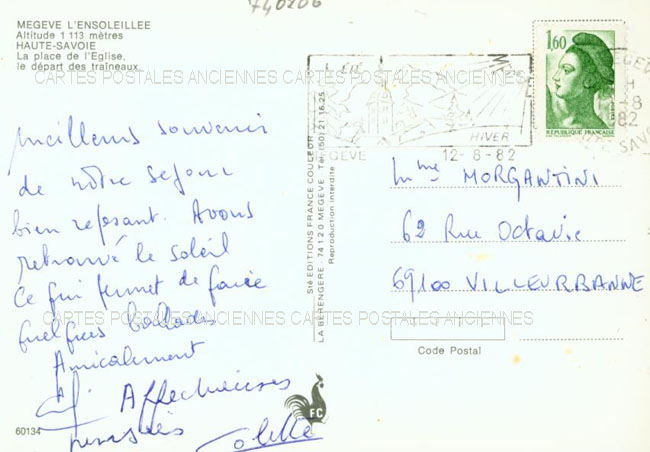 740206
MEGEVE L'ENSOLEILLEE
Altitude 1 113 mètres
HAUTE-SAVOIE
La place de l'Eglise,
le départ des traîneaux.
CARTES POSTALES ANCIENNES CARTES POSTALES ANCIENNES CARTES POSTALES ANCIENNES
meilleurs souvenir
de notre sejour
bien reposant. Avons
retrouvé le soleil
ce qui permet de faire
quelques ballades
Amicalement
Affectueuses
pensées
Colette
60134
Sté EDITIONS FRANCE COULEUR
LA BERENGERE 74120 MEGEVE Tél. (50) 21 16 25
Reproduction interdite
FC
L'ÉTÉ
HIVER
MEGEVE 12-8-82
1,60
REPUBLIQUE FRANÇAISE
MEGEVE
H
-8
82
SAVOIE
Mme MORGANTINI
62 Rue Octavie
69100 VILLEURBANNE
CARTES POSTALES ANCIENNES CARTES POSTALES ANCIENNES CARTES POSTALES ANCIENNES
Code Postal